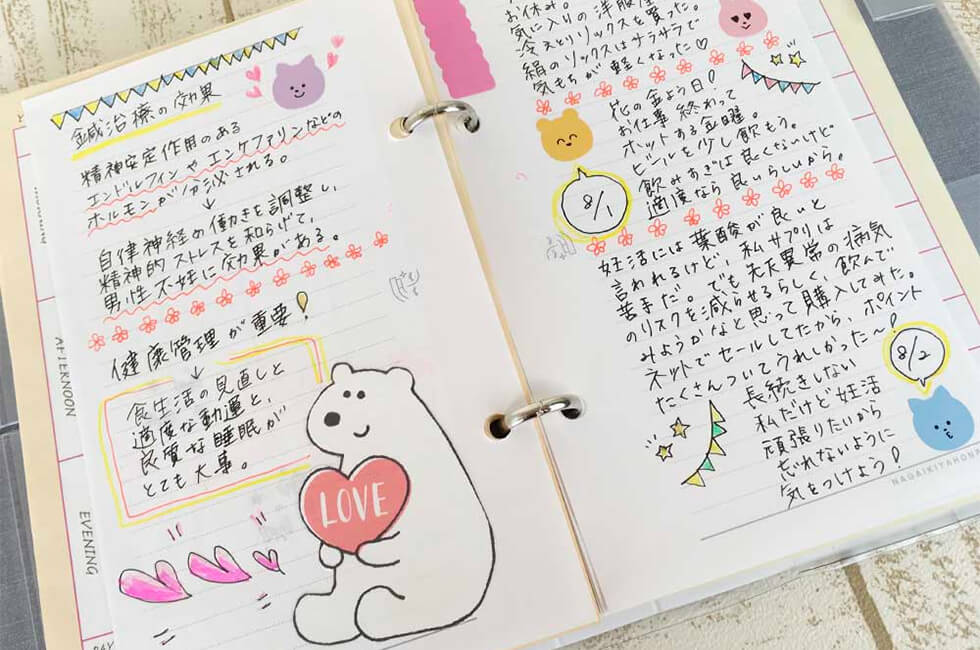 鍼治療の効果
精神安定作用のある
エンドルフィンやエンケファリンなどの
ホルモンが分泌される。
↓
自律神経の働きを調整し、
精神的ストレスを和らげて、
男性不妊に効果がある。
健康管理が重要!
↓
食生活の見直しと
適度な動運と、
良質な睡眠が
とても大事。
LOVE
AFTERNOON
EVENING
お休み。
気に入りの洋服屋
冷えとりソックスを買った。
絹のソックスはサラサラで
気もちが軽くなった♡
花の金よう日!
お仕事終わって
ホットする金曜。
ビールを少し飲もう。
飲みすぎは良くないけど
適度なら良いらしいから。
8/1
妊活には葉酸が良いと
言われるけど、私サプリは
苦手だ。でも先天異常の病気
のリスクを減らせるらしく、飲んで
みようかなと思って購入してみた。
ネットでセールしてたから、ポイント
たくさんついてうれしかった〜!
8/2
長続きしない
私だけど妊活
頑張りたいから
忘れないように
気をつけよう!
NAGAIKIYAHONA